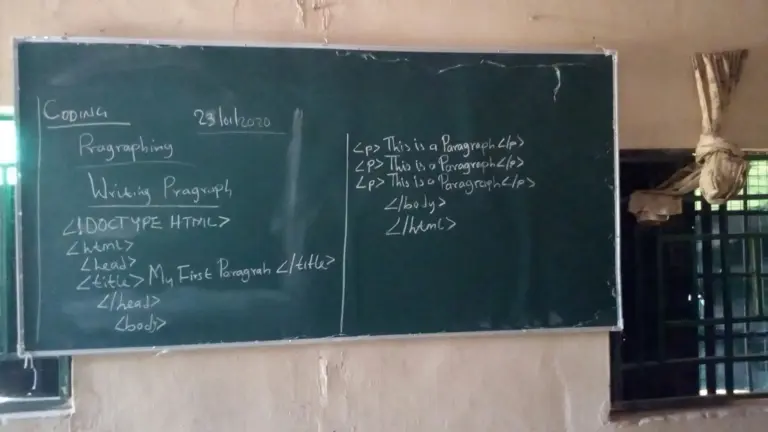 CODING
23/01/2020
Pragraphing
Writing Pragraph
<!DOCTYPE HTML>
<html>
<head>
<title> My First Paragrah </title>
</head>
<body>
<p> This is a Paragraph </p>
<p> This is a Paragraph </p>
<p> This is a Paragraph </p>
</body>
</html>